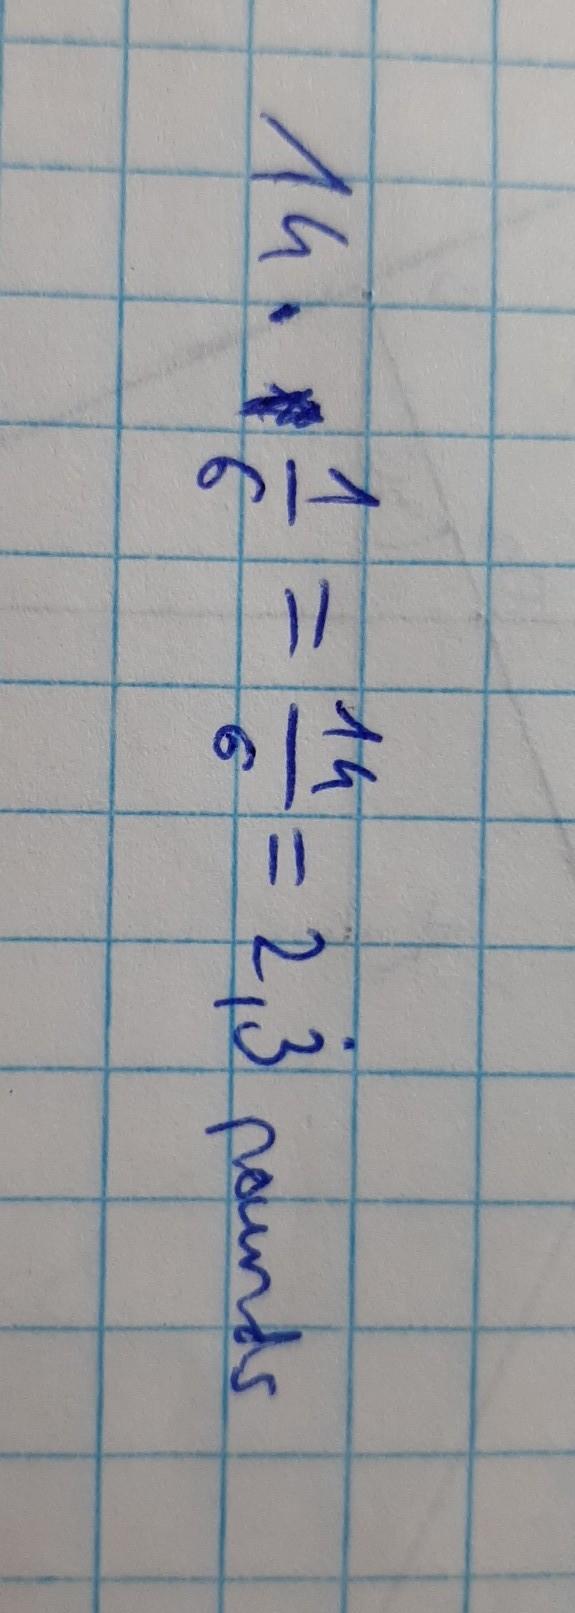 14 · 1/6 = 14/6 = 2,3̇ pounds